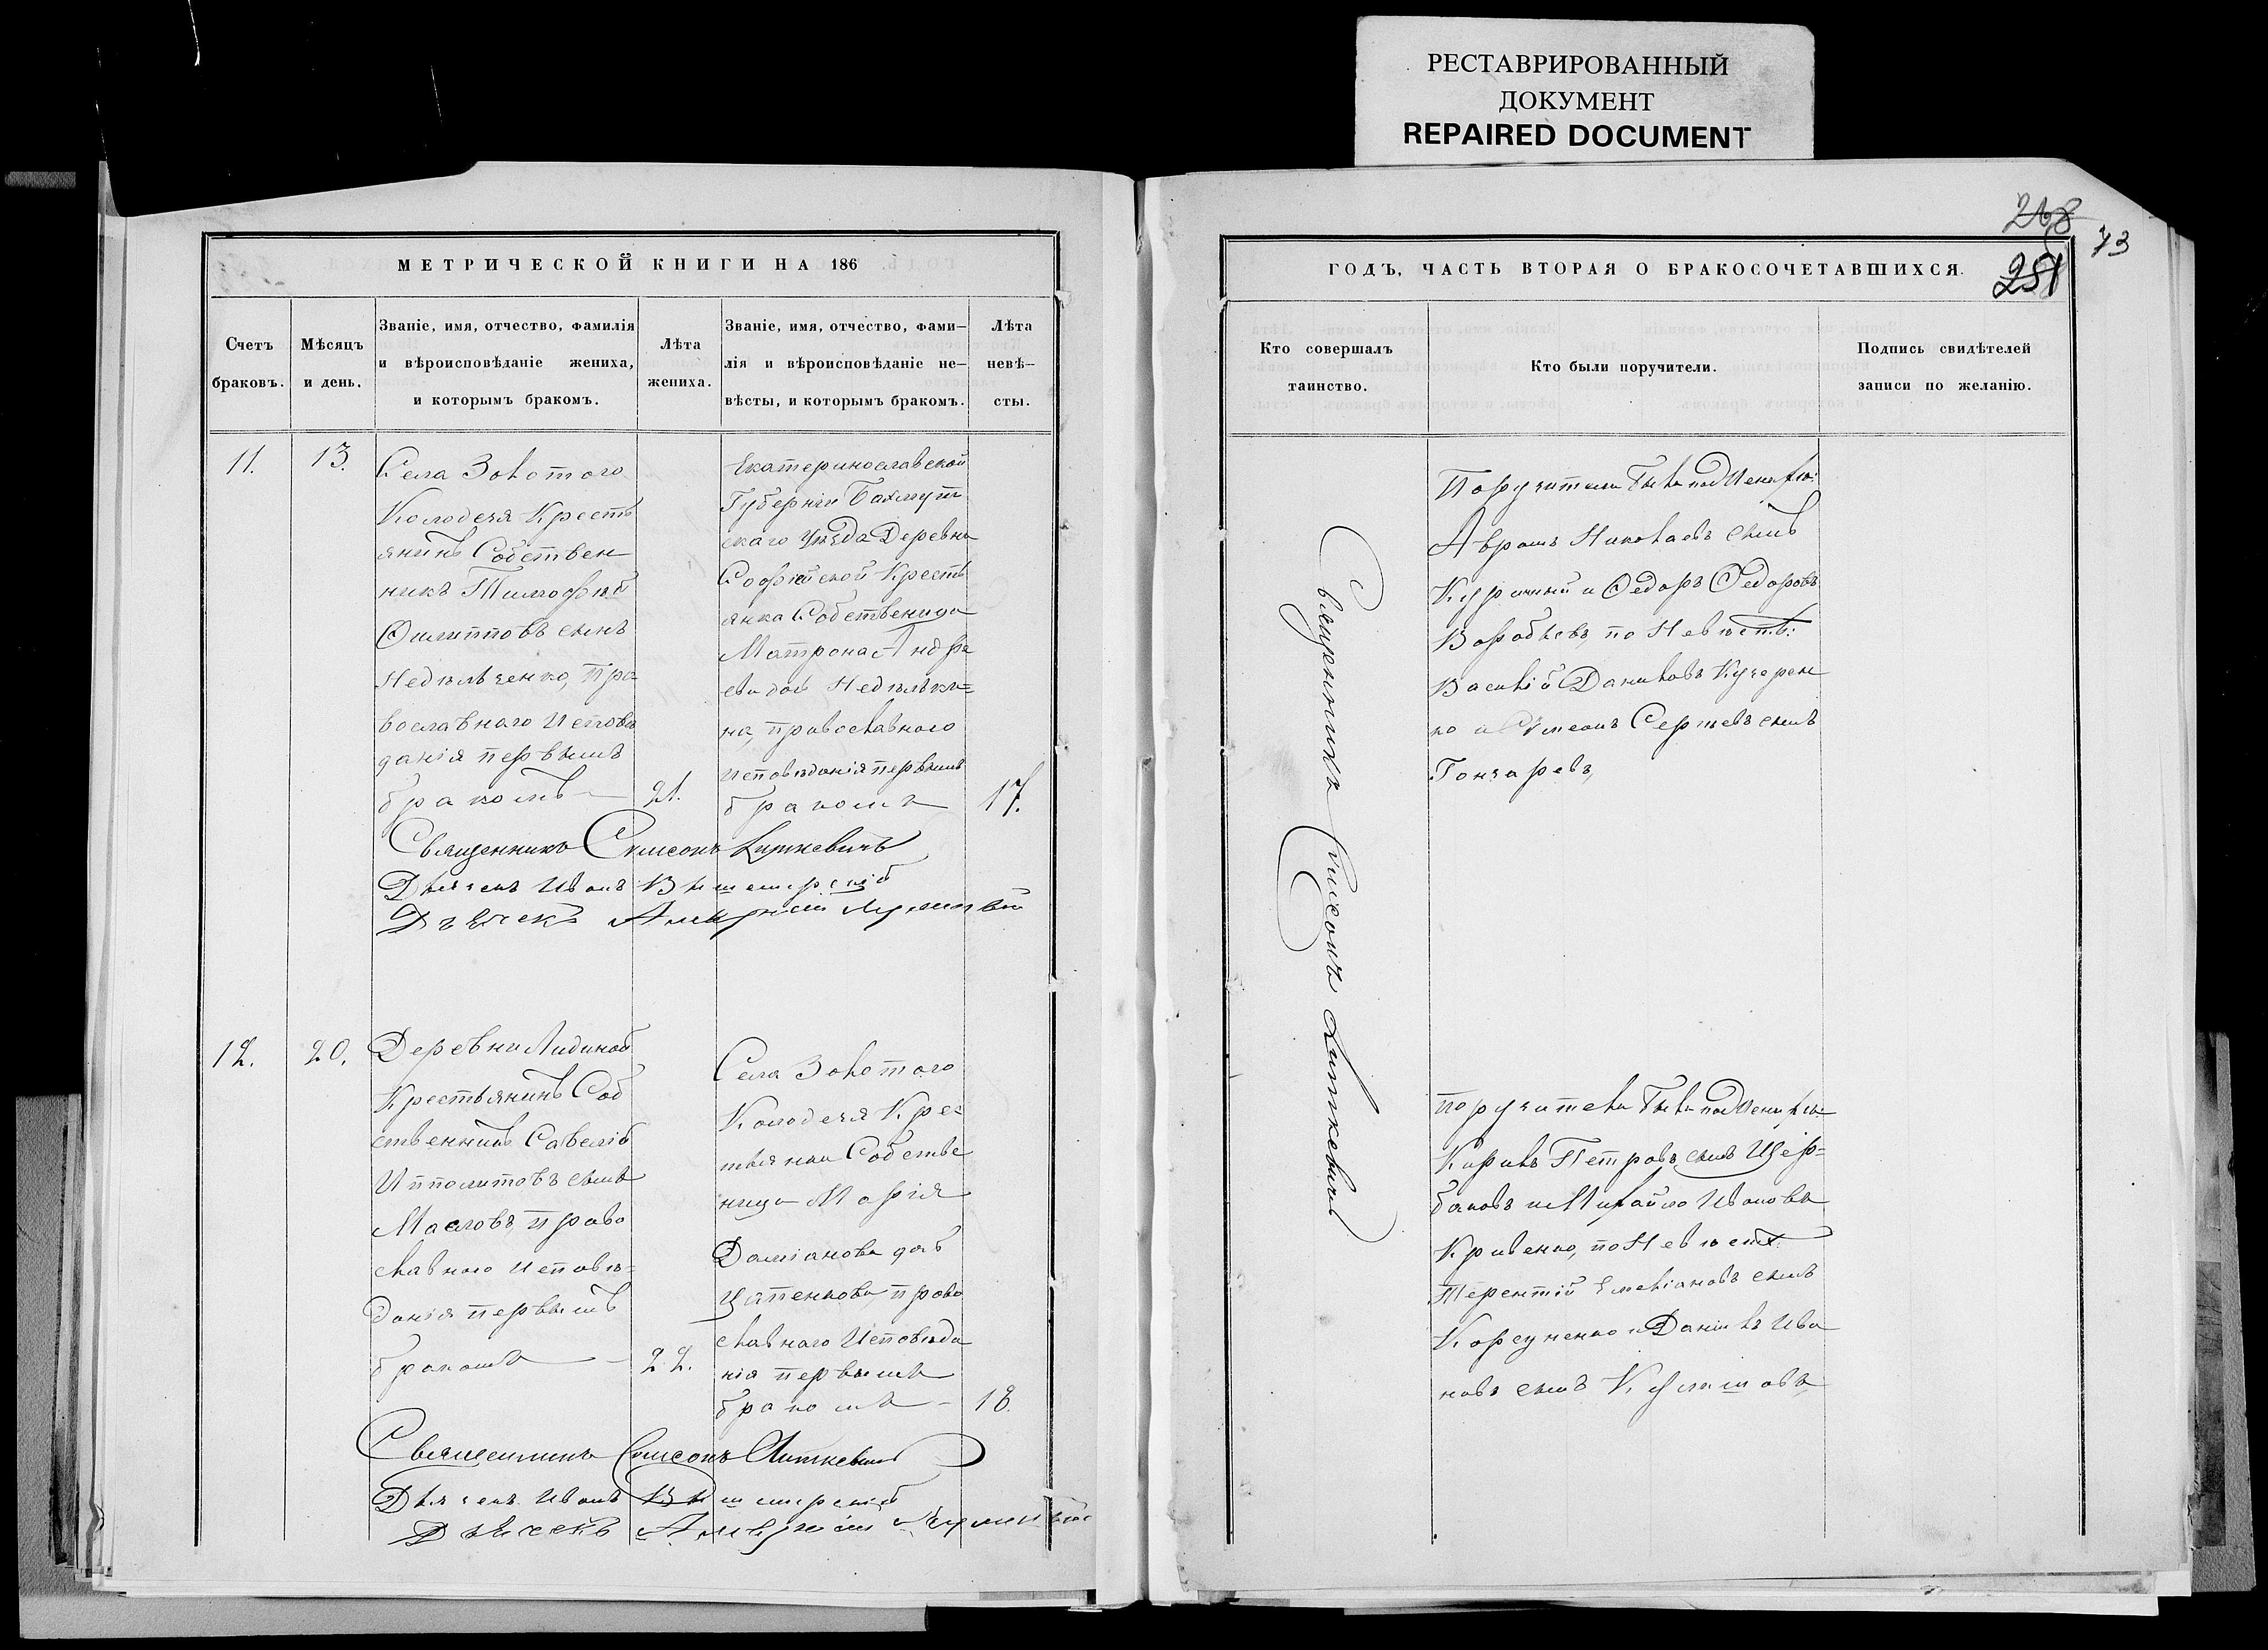 РЕСТАВРИРОВАННЫЙ
ДОКУМЕНТ
REPAIRED DOCUMENT
МЕТРИЧЕСКОЙ КНИГИ НА 186
Счетъ
браковъ.
Мѣсяцъ
и день.
Званіе, имя, отчество, фамилія
и вѣроисповѣданіе жениха,
и которымъ бракомъ.
Лѣта
жениха.
Званіе, имя, отчество, фами–
лія и вѣроисповѣданіе не–
вѣсты, и которымъ бракомъ.
Лѣта
невѣ–
сты.
11.
13.
Села Золотого
Колодезя Кресть
янинъ Собствен
никъ Тимофѣй
Филипповъ сынъ
Недѣльченко, Пра
вославнаго Исповѣ
данія первымъ
бракомъ
21.
Екатеринославской
Губерніи Бахмут
скаго Уѣзда Деревни
Софійской Кресть
янка Собственица
Матрона Андре
ева дочь Недѣльки=
на, православнаго
исповѣданія первымъ
бракомъ
17.
Священникъ Симеонъ Литкевичъ
Дьячекъ Иванъ
Дьячекъ
12.
20.
Деревни Лидиной
Крестьянинъ Соб
ственникъ Савелій
Ипполитовъ сынъ
Масловъ, право
славнаго исповѣ=
данія первымъ
бракомъ
22.
Села Золотого
Колодезя Крес
тьянка Собстве
ница Марія
Даміанова дочь
Цапенкова, право
славнаго Исповѣда
нія первымъ
бракомъ
18.
Священникъ Симеонъ Литкевичъ
Дьячекъ Иванъ
Дьячекъ
ГОДЪ, ЧАСТЬ ВТОРАЯ О БРАКОСОЧЕТАВШИХСЯ.
268
251
73
Кто совершалъ
таинство.
Кто были поручители.
Подпись свидѣтелей
записи по желанію.
Священникъ Симеонъ Литкевичъ
Поручители были по Жениху:
Аврамъ Николаевъ сынъ
и Федоръ Федоровъ
Воробьевъ, по Невѣстѣ:
Василій Даниловъ Кучерен
ко и Симеонъ Сергѣевъ сынъ
Гончаревъ,
поручители были по Жениху
Кирилъ Петровъ сынъ Щер=
баковъ и Михайло Ивановъ
Кривенко, по Невѣстѣ:
Терентій Емеліановъ сынъ
Корсуненко и Даніилъ Ива
новъ сынъ